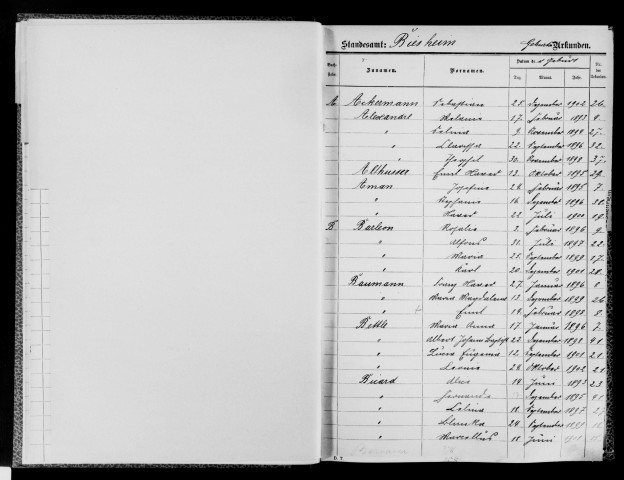 Standesamt: Biesheim Geburts Urkunden.
Buch-stabe. Zunamen. Vornamen. Datum der Geburt Tag. Monat. Jahr. Nr. der Urkunden.
A. Ackermann Sebastian 25. Dezember 1902 26.
Alexander Melanie 17. Februar 1893 9.
" 9. November 1894 27.
" 22. September 1896 32.
" Joseph 30. November 1898 37.
Althusser Emil Xaver 13. Oktober 1895 29.
Aman Josefine 28. Februar 1895 7.
" Stefanie 16. Dezember 1896 38.
" Xaver 22. Juli 1900 19.
B. Barleon Rosalie 3. Februar 1896 9.
" Alfons 31. Juli 1897 22.
" Maria 25. September 1899 17.
" Karl 20. Dezember 1901 28.
Baumann Georg Xaver 27. Januar 1896 8.
" Maria Magdalena 13. Dezember 1899 26.
" Emil 19. Februar 1898 8.
Bettle Maria Anna 17. Januar 1896 7.
" Albert Johann Baptist 22. Dezember 1898 41.
" Lucia Eugenia 12. September 1901 21.
" Leonie 28. Oktober 1902 21.
Bicard Alice 19. Juni 1893 23.
" Fernande Dezember 1895 41.
" Celina 18. September 1897 27.
" Blanka 24. September 1899 18.
" Marcellus 18. Juni
D. T.